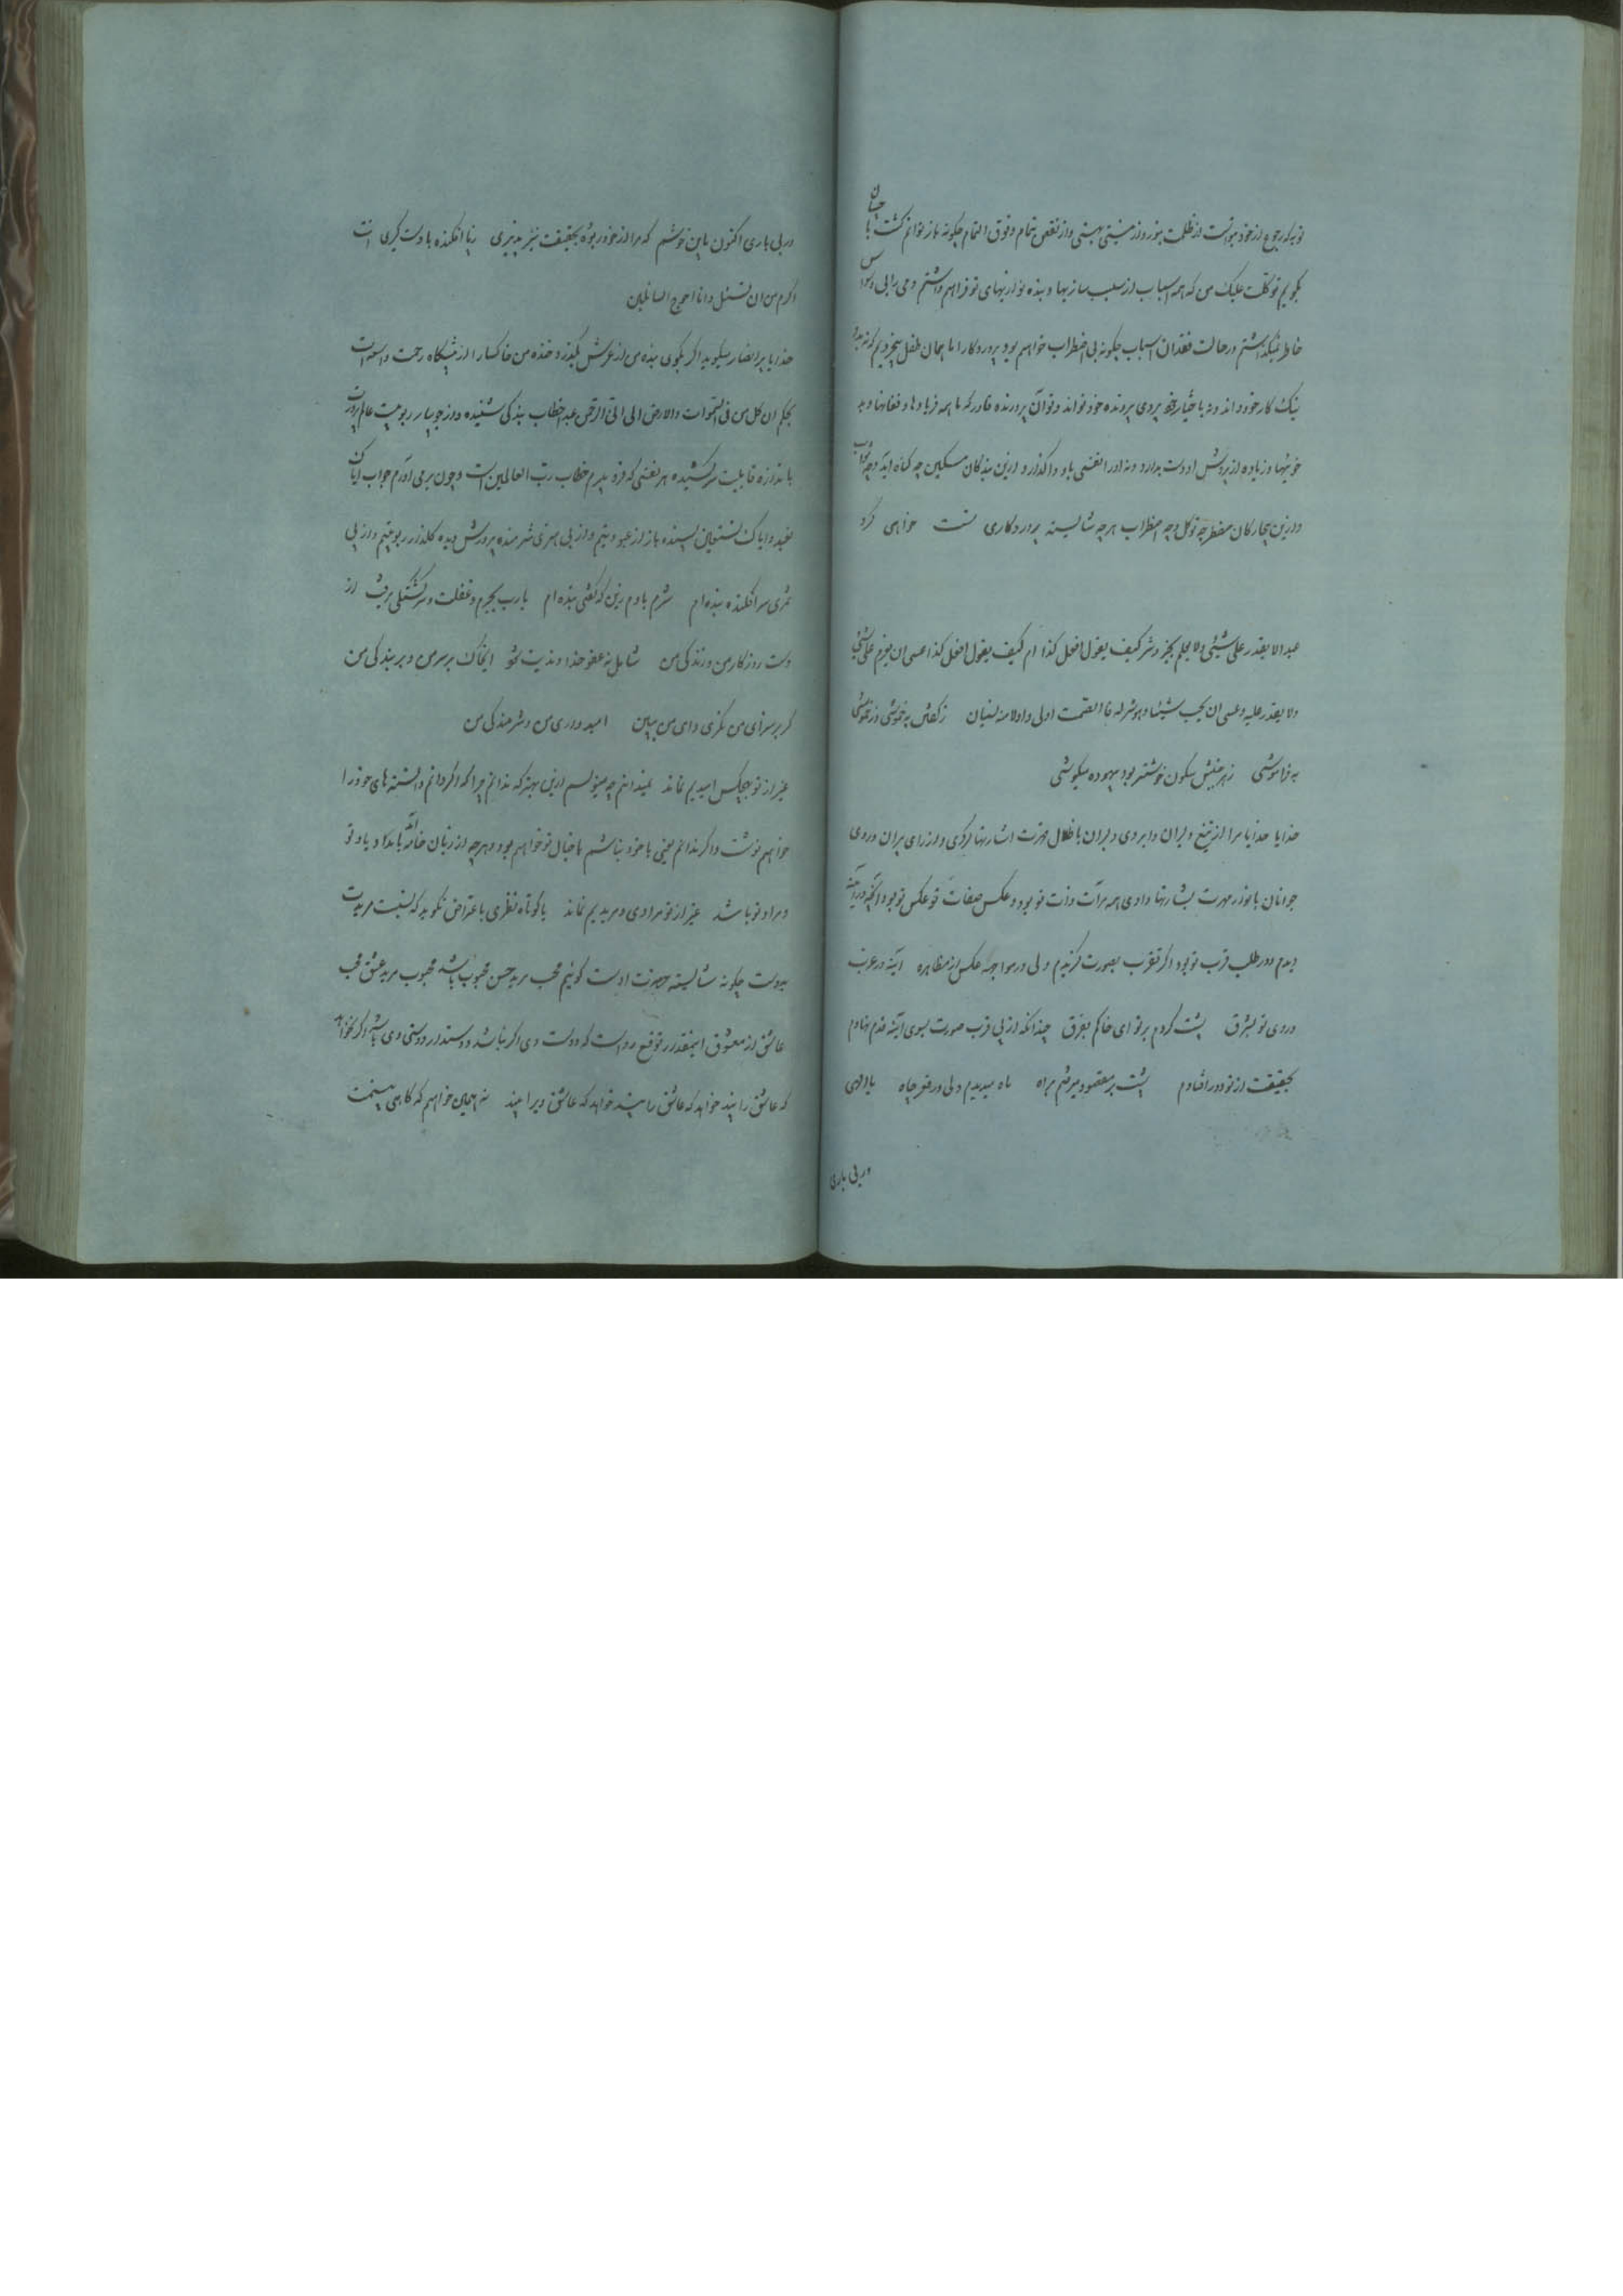 توبه که رجوع از خود بتو است از ظلمت بنور و از نیستی بهستی و از نقص بتمام و فوق التمام چکونه باز توانم کشت با چنان
بکویم توکلت علیک من که همه اسباب از سبب سازیها و بنده نوازیهای تو فراهم داشتم و می را بی وسواس
خاطر نمیکذاشتم در حالت فقدان اسباب چکونه بی اضطراب خواهم بود پروردکارا ما همان طفل بیخردیم که نه بد و
نیک کار خود داند و نه باختیار خود پروی پرونده خود تواند و تو آن پرورنده قادر که با همه فریاد ها و فغانها و به
خوئیها و زیاده از پرورش او دست بدارد و نه او را بنفسی باو واکذارد و ازین بندکان مسکین چه کناه آید و چه ثواب
و ازین بیچارکان مضطر چه توکل و چه اضطراب هر چه شایسته پروردکاری تست خواهی کرد
عبد الا یقدر علی شیئی و لا یعلم بخیر و شر کیف یقول افعل کذا ام کیف یقول لا افعل کذا عسی ان یعزم علی شیئی
و لا یقدر علیه و عسی ان یحب شیئا و هو شر له فا الصمت اولی و اولا منه النسیان ز کفتن به خموشی و ز خموشی
به فراموشی ز هر جنبش سکون خوشتر بود بیهوده میکوشی
خدایا خدایا مرا از تیغ دلیران و ابروی دلبران با جلال قهرت اشارتها کردی و از رای پیران و روی
جوانان با نوار مهرت بشارتها دادی همه مرآت ذات تو بود و عکس صفات تو عکس تو بود آنچه در آینه
دیدم و در طلب قرب تو بود اکر تقرب بصورت کزیدم ولی در مواجهه عکس از مظاهره آینه در غرب
و روی تو بشرق پشت کردم بر تو ای خاکم بفرق چندانکه از پی قرب صورت بسوی آینه قدم نهادم
بحقیقت از تو دور افتادم پشت بر مقصود میرفتم براه ماه میدیدم ولی در قعر چاه یا الهی
در بی یاری
در بی یاری اکنون باین خوشم که مرا از خود ربوده بحقیقت نیز پذیری ربا افکنده با دست کیری انت
اکرم من ان تسئل و انا احوج السائلین
خدایا پیر انصار میکوید اکر بکوی بنده من از عرش بکذرد خنده من خاکسار از پیشکاه رحمت واسعه ات
بحکم ان کل من فی السموات والارض الی اتی الرحمن عبدا خطاب بندکی شنیده و از جویبار ربوبیت عالم پرورت
باندازه قابلیت سر کشیده هر نفسی که فرو میبرم خطاب رب العالمین است و چون برمی آرم جواب ایاک
نعبد و ایاک نستعین بسنده باز از عبودیتم و از بی هنری شرمنده پرورش دیده کلزار ربوبیتم و از بی
ثمری سر افکنده بنده ام شرم بادم زین که کفتی بنده ام یارب بجرم و غفلت و سرکشتکی برفت از
دست روزکار من و زندکی من شایان به عفو خداوندیت تو ایخاک بر سر من و بر بندکی من
کر بر سزای من نکری وای من ببین امیدواری من و شرمندکی من
غیر از تو بهیچکس امیدیم نماند نمیدانم چه مینویسم ازین بهتر که ندانم چرا که اکر دانم دانسته های خود را
خواهم نوشت و اکر ندانم یعنی با خود نباشم با خیال تو خواهم بود و هر چه از زبان خامه آید باندکار و یاد تو
و مراد تو باشد غیر از تو مرادی و مریدیم نماند یا کوتاه نظری باعتراض نکوید که نسبت مریدیت
بدوست چکونه شایسته حضرت اوست کوئیم محب مرید حسن محبوب باشد محبوب مرید عشق محب
عاشق از معشوق اینقدر توقع رواست که دوست وی اکر نباشد دوستدار دوستی وی باشد و اکر نخواهد
که عاشق را بیند خواهد که عاشق را بیند خواهد که عاشق ویرا بیند نه همین خواهم که کاهی بینمت